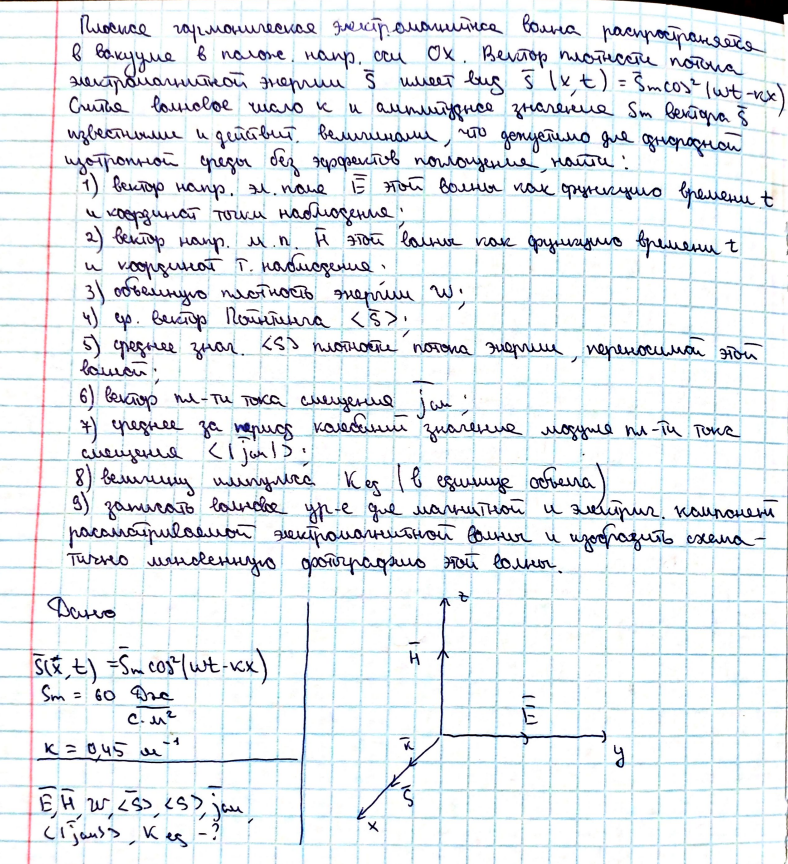 Плоская гармоническая электромагнитная волна распространяется
в вакууме в полож. напр. оси OX. Вектор плотности потока
электромагнитной энергии S̄ имеет вид S̄(x,t) = S̄m cos²(ωt-kx)
Считая волновое число k и амплитудное значение Sm вектора S̄
известными и действит. величинами, что допустимо для однородной
изотропной среды без эффектов поглощения, найти:
1) вектор напр. эл. поле Ē этой волны как функцию времени t
и координат точки наблюдения;
2) вектор напр. м.п. H̄ этой волны как функцию времени t
и координат т. наблюдения.
3) объемную плотность энергии w;
4) ср. вектор Пойнтинга <S̄>;
5) среднее знач. <S> плотности потока энергии, переносимой этой
волной;
6) вектор пл-ти тока смещения j̄см;
7) среднее за период колебаний значение модуля пл-ти тока
смещения <|j̄см|>;
8) величину импульса Kед (в единице объема)
9) записать волновое ур-е для магнитной и электрич. компонент
рассматриваемой электромагнитной волны и изобразить схема-
тично мгновенную фотографию этой волны.
Дано
S̄(x̄,t) = S̄m cos²(ωt-kx)
Sm = 60 Дж
с·м²
k = 0,45 м⁻¹
Ē, H̄, w, <S̄>, <S>, j̄см,
<|j̄см|>, Kед -?
z
H̄
Ē
k̄
y
S̄
x